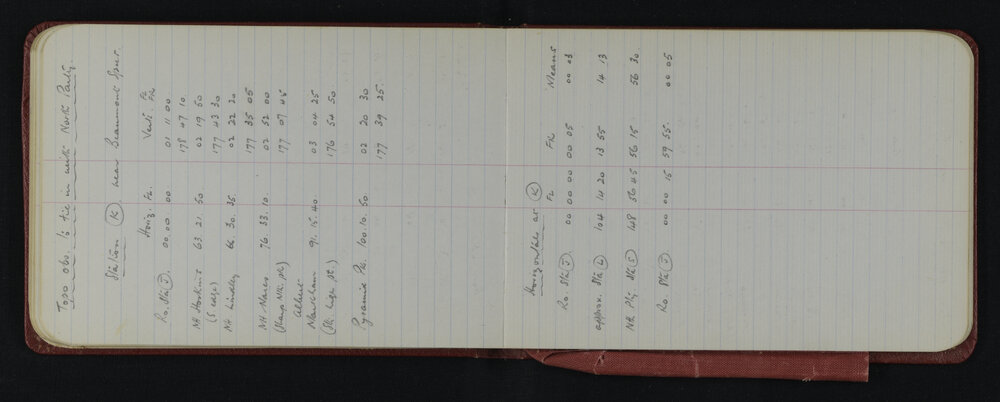 Topo obs. to tie in with North Party.
Station (K) near Beaumont Spur.
Horiz FL. Verti. FL FR
Ro. Sta (J). 00.00 00 01 11 00
178 47 10
Mt Hoskins 63 21. 50 02 19 50
(S edge) 177 43 30
Mt Lindley 66. 30. 35. 02 22 20
177 35 05
Mt Nares 76 33. 10 02 52 00
(Sharp Nth. pk.) 177 07 45
Albert
Markham 91. 15. 40 03 04 25
(Sth. edge pk.) 176 54 50
Pyramid Pk. 100. 10. 50 02 20 30
177 39 25
Horizontals at (K)
FL FR Means
Ro. Sta (J) 00 00 00 00 00 05 00 03
approx. Sta (L) 104 14 20 13 55 14 13
Nth Pty. Sta (S) 148 56 45 56 15 56 30
Ro. Sta (J) 00 00 15 59 55. 00 05